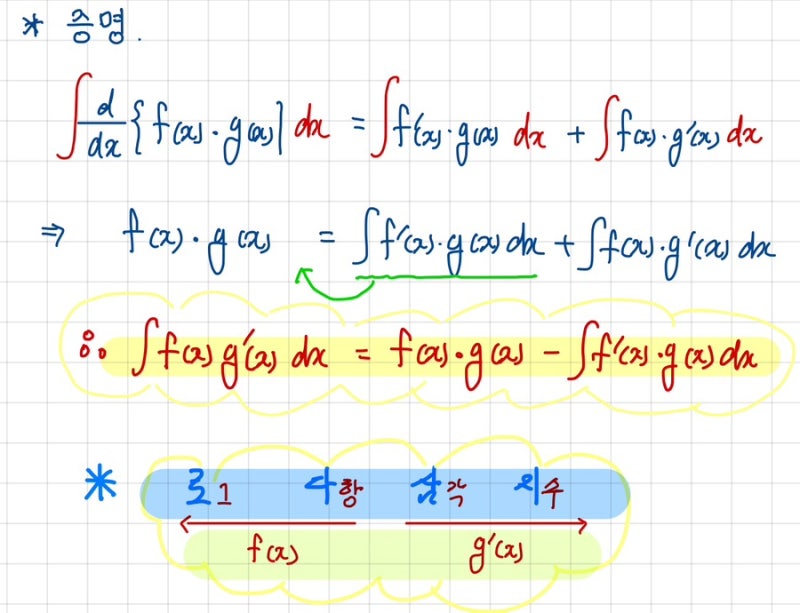 * 증명.
∫ d/dx {f(x)·g(x)} dx = ∫f'(x)·g(x) dx + ∫f(x)·g'(x) dx
⇒ f(x)·g(x) = ∫f'(x)·g(x) dx + ∫f(x)·g'(x) dx
∴ ∫f(x) g'(x) dx = f(x)·g(x) - ∫f'(x)·g(x) dx
* 로그 다항 삼각 지수
f(x) g'(x)